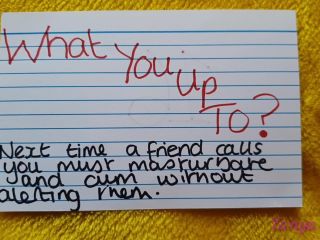 What You Up
To?
Next time a friend calls
you must masturbate
and cum without
alerting them.